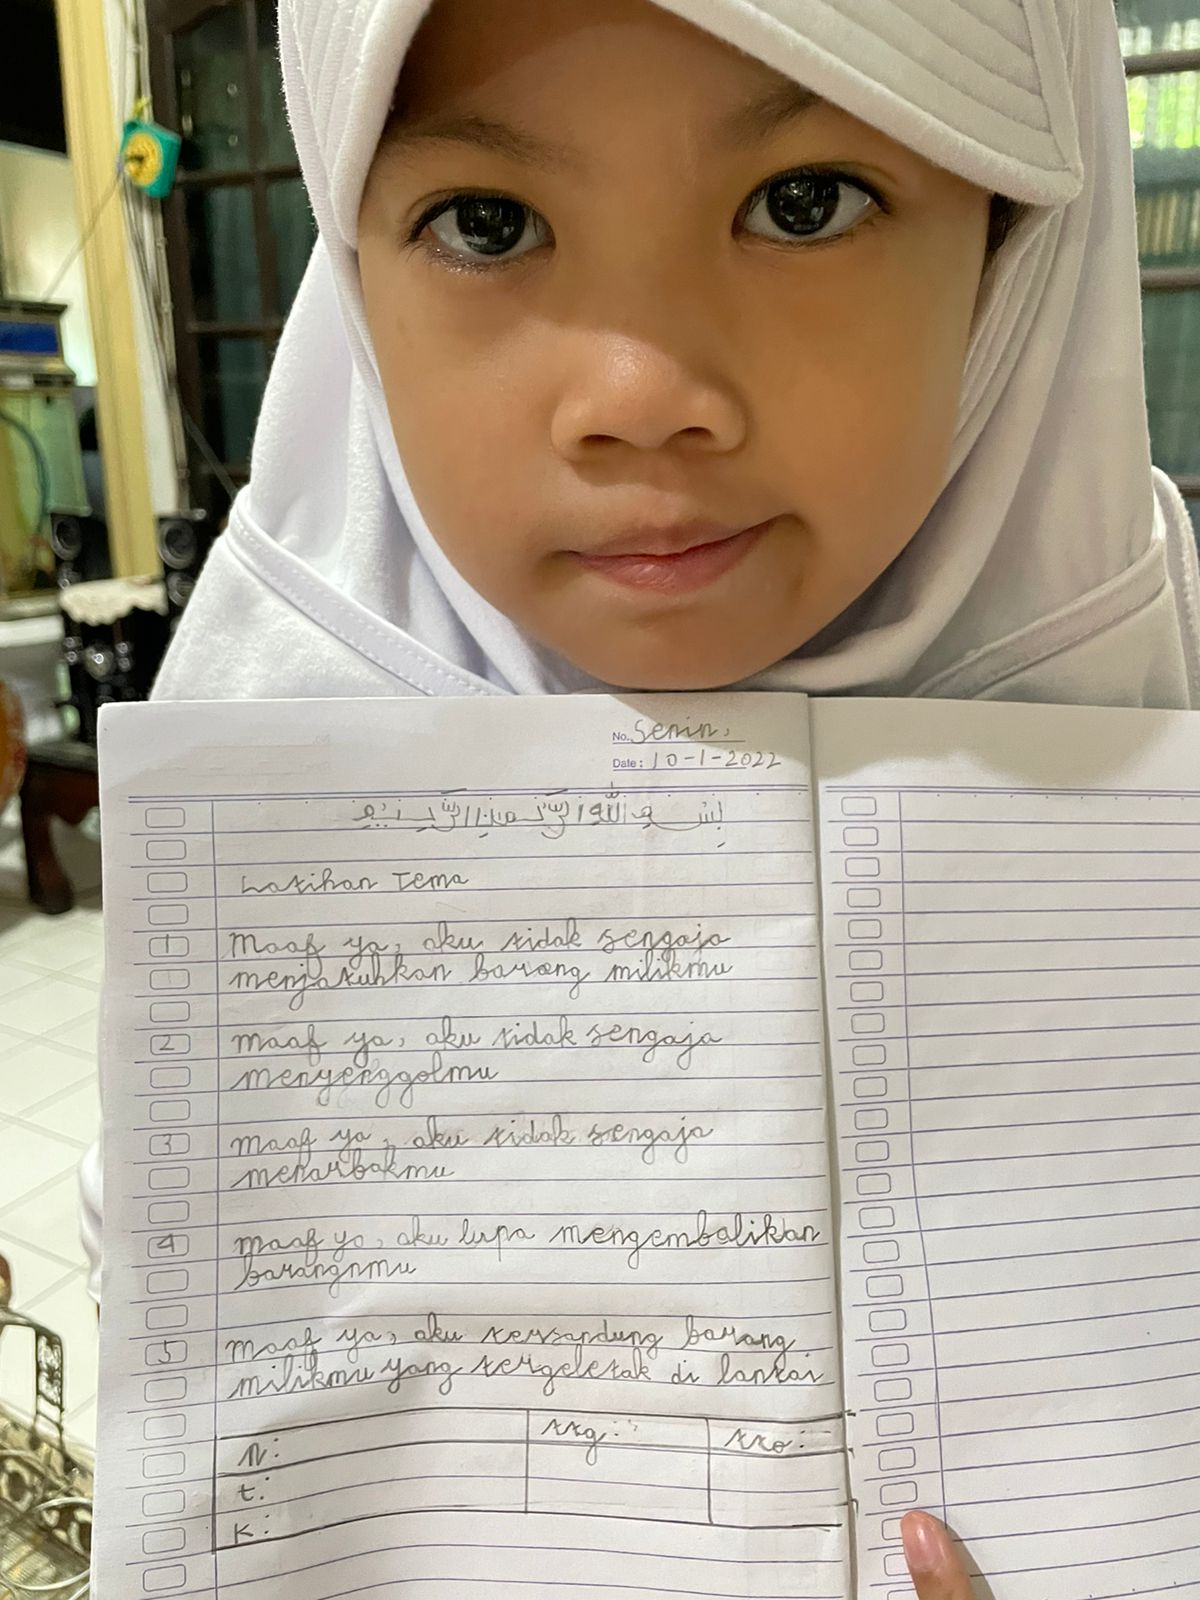 No. Senin,
Date: 10-1-2022
بِسْمِ اللّٰهِ الرَّحْمٰنِ الرَّحِيْمِ
Latihan Tema
1 Maaf ya, aku tidak sengaja
menjatuhkan barang milikmu
2 maaf ya, aku tidak sengaja
menyenggolmu
3 maaf ya, aku tidak sengaja
menarbakmu
4 maaf ya, aku lupa mengembalikan
barangnmu
5 maaf ya, aku tersandung barang
milikmu yang tergeletak di lantai
N: ttg: tto:
t:
K: